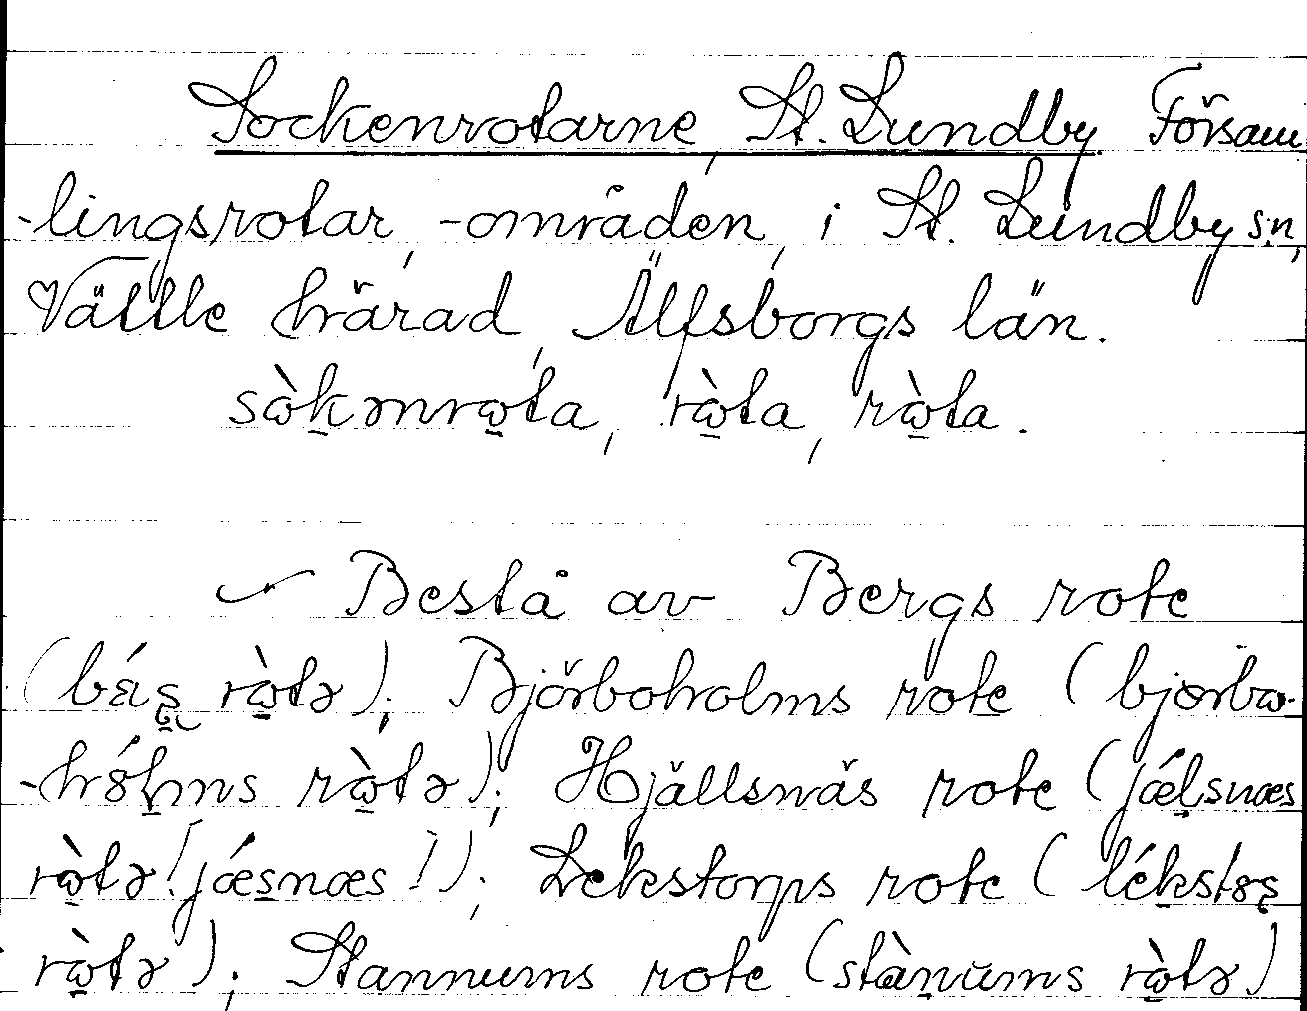 Sockenrotarne, St. Lundby. Församlingsrotar, -områden, i St. Lundby sn,
Vättle härad, Älfsborgs län.
sὼk̠ənrω̠ta, rὼ̠ta, rὼ̠ta.
Bestå av Bergs rote
(bǽs̠ rὼ̠tə); Björboholms rote (björbω-
-hól̠ms rὼ̠tə); Hjällsnäs rote (jǽl̠snæs
rὼ̠tə! jǽs̠næs!); Lekstorps rote (lék̠stos̠
rὼ̠tə); Stannums rote (stàn̠ŭms rὼ̠tə)